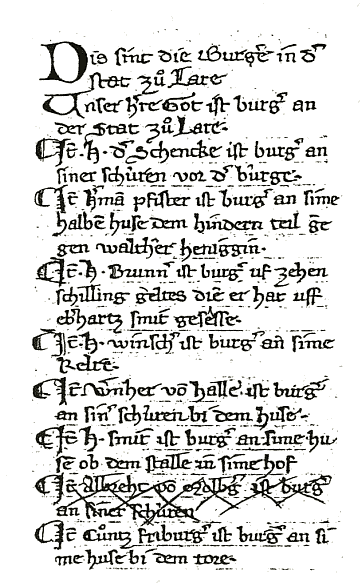 Dis sint die Burgē in dʾ
stat zů Lare
Unser hʾre Got ist burgʾ an
der Stat zů Lare.
Itē. H. dʾ Schencke ist burgʾ an
siner schüren vor dʾ bürge.
Itē hʾmā pfister ist burgʾ an sime
halbē huse dem hindern teil gē
gen walther heniggin.
Itē. H. Brunnʾ ist burgʾ uf zehen
schilling geltes die er hat uff
ebʾhartz smit gesesse.
Itē H. winschʾ ist burgʾ an sime
Itē wʾnher vō halle ist burgʾ
an sinʾ schüren bi dem huse.
Itē H. smit ist burgʾ an sime hu
se ob dem stalle in sime hof
Itē Albreht vō ist burgʾ
an siner schüren
Itē Cůntz friburgʾ ist burgʾ an si
me huse bi dem tore.